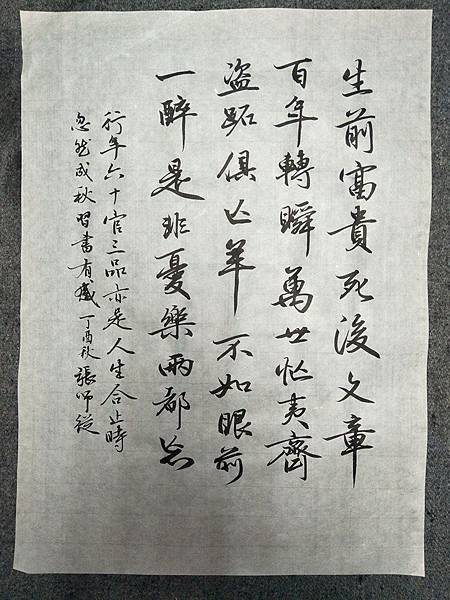 生前富貴死後文章
百年轉瞬萬世忙夷齊
盜跖俱亡羊不如眼前
一醉是非憂樂兩都忘
行年六十官三品亦是人生合止時
忽然成秋習書有感丁酉秋張師從